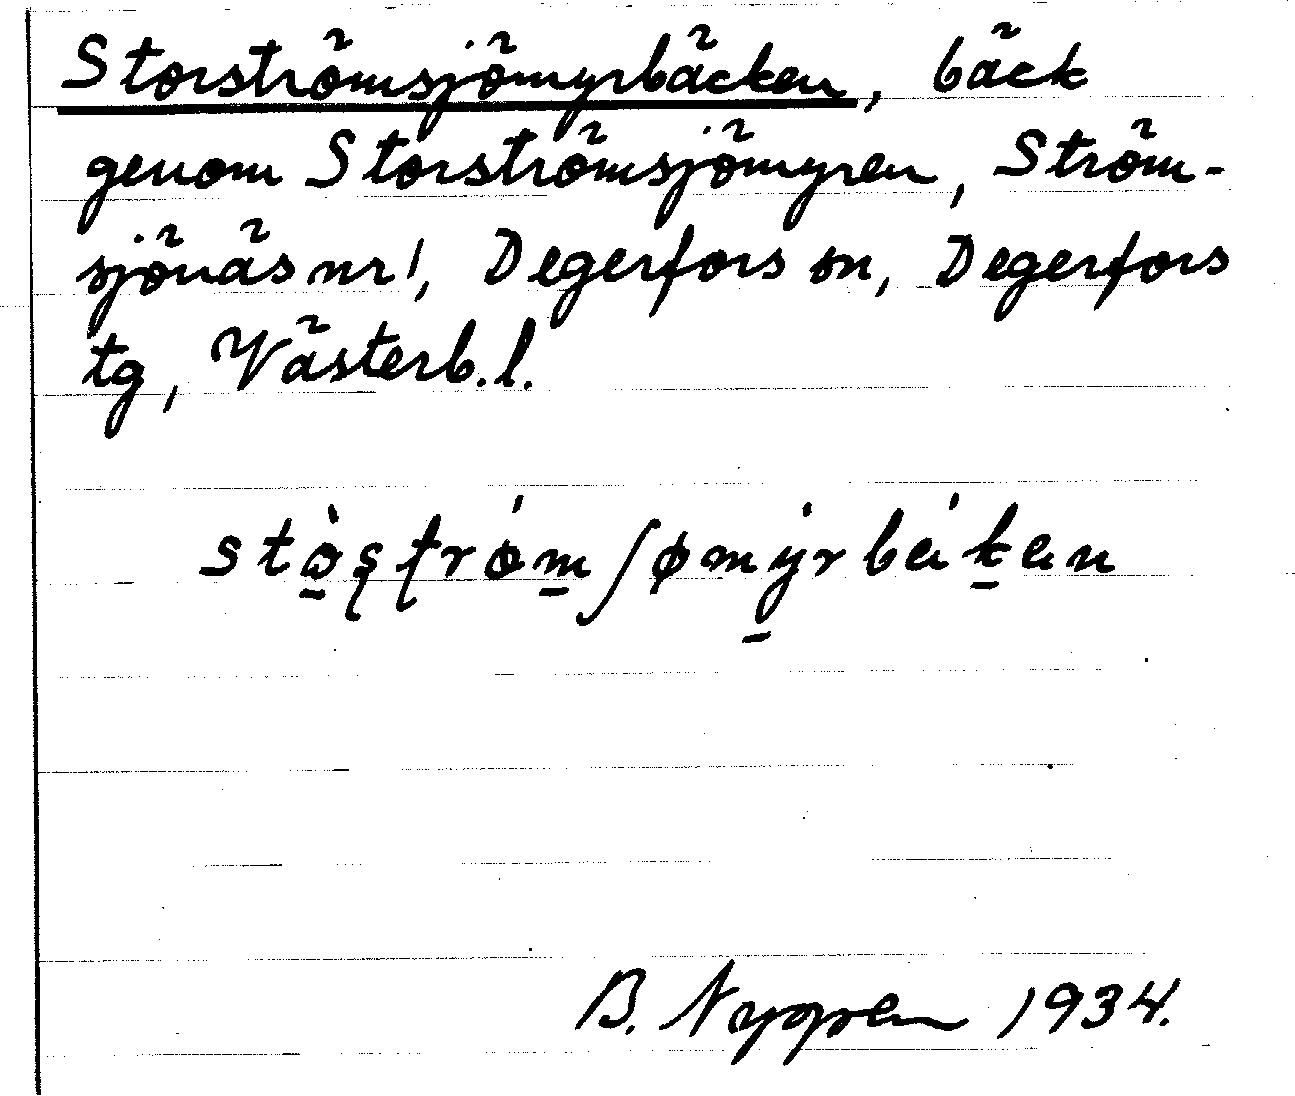 Storströmsjömyrbäcken, bäck
genom Storströmsjömyren, Ström-
sjönäs nr 1, Degerfors sn, Degerfors
tg, Västerb. l.
B. Nygren 1934.